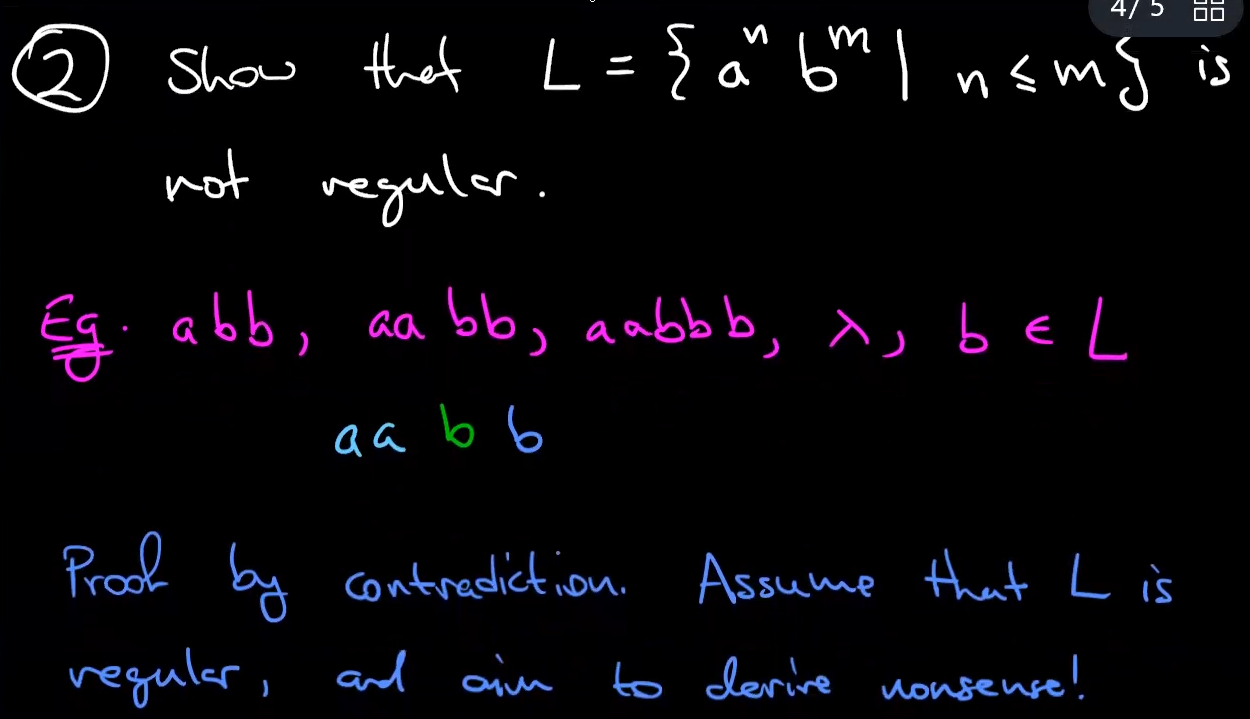 4/5
② Show that L = { aⁿ bᵐ | n ≤ m} is
not regular.
Eg. abb, aa bb, aabbb, λ, b ∈ L
aa b b
Proof by contradiction. Assume that L is
regular, and aim to derive nonsense!